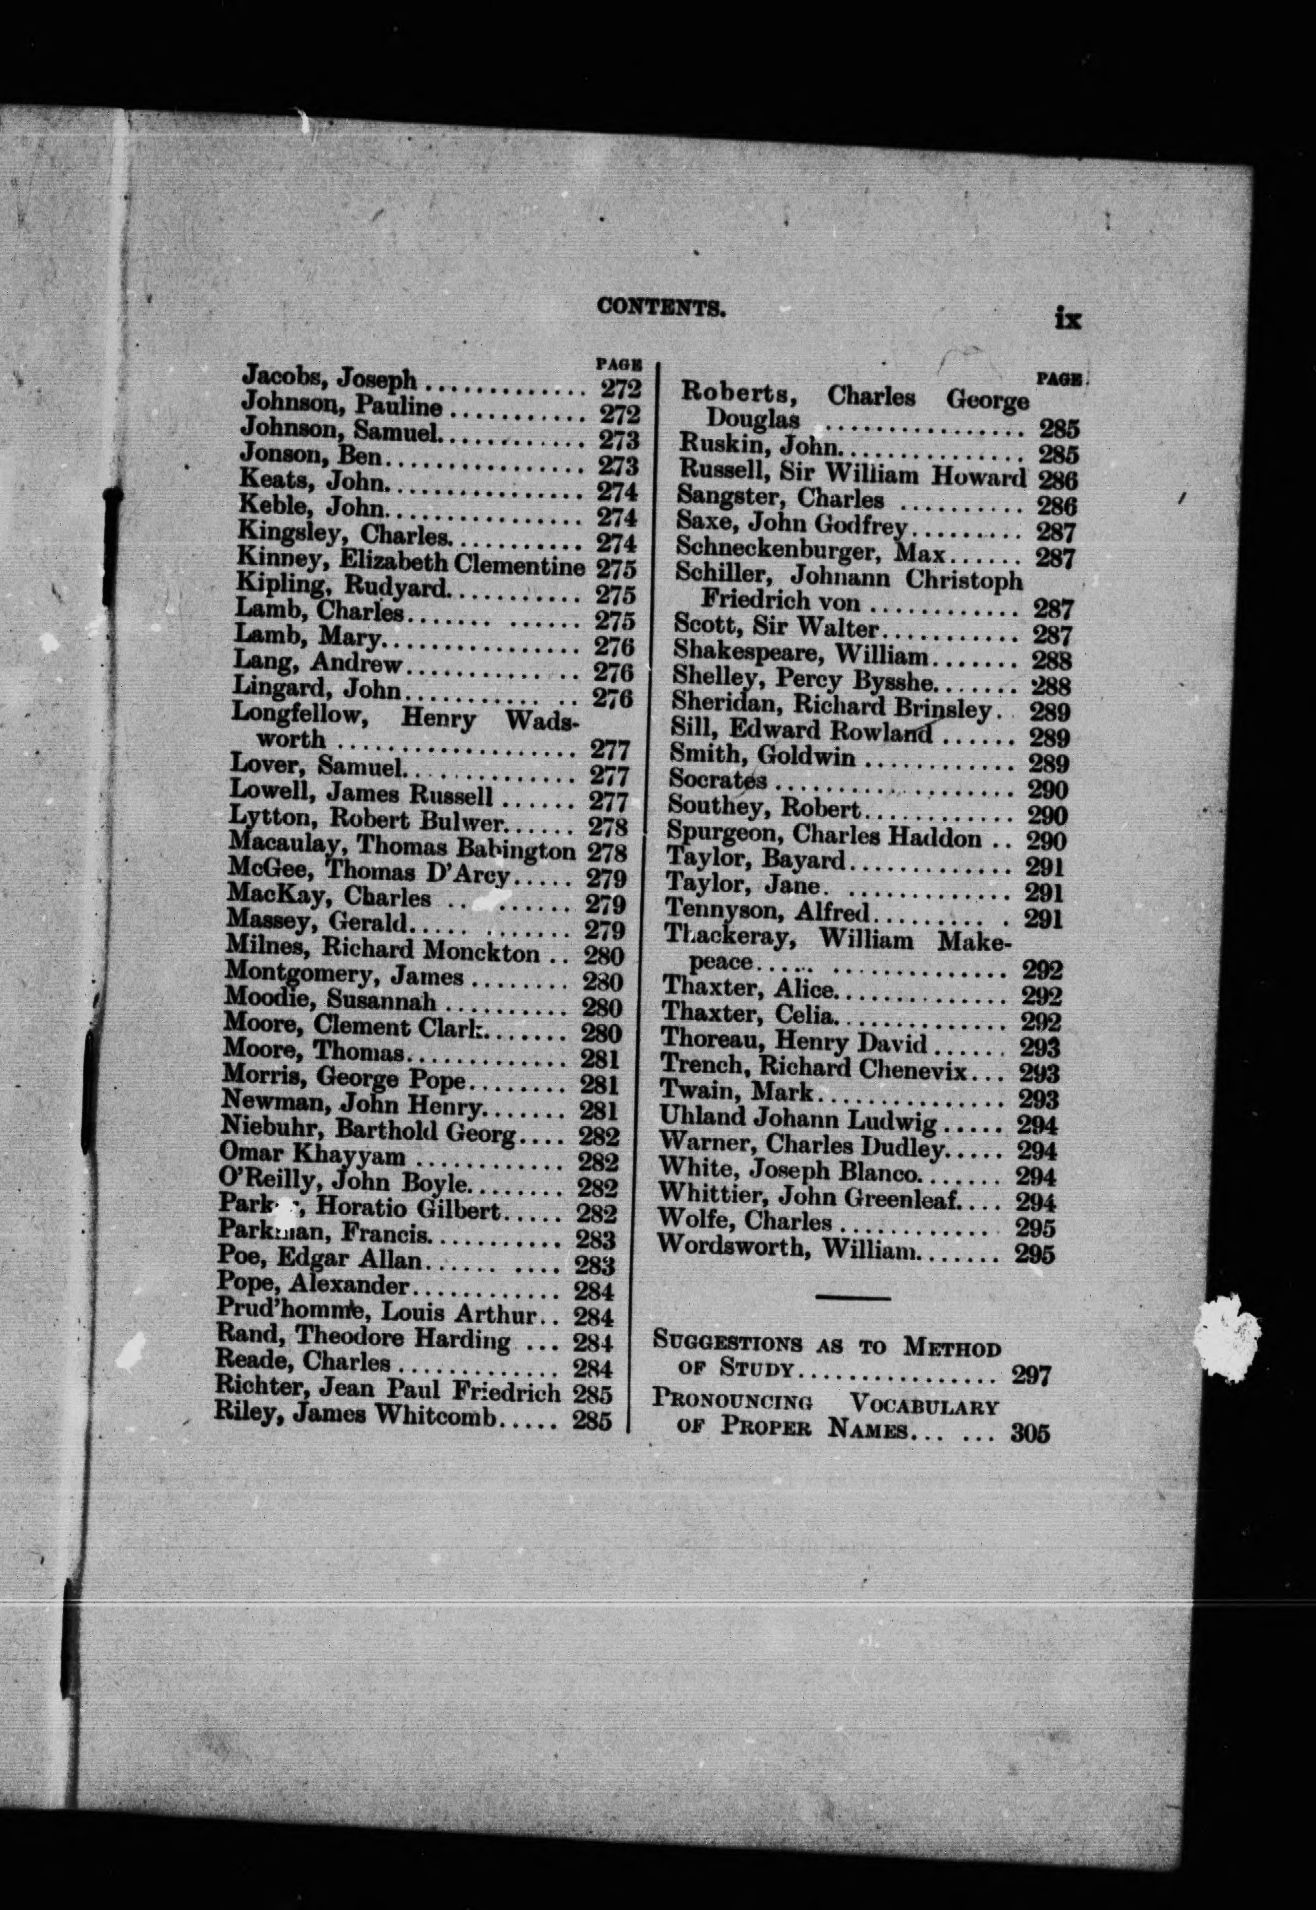 CONTENTS.
ix
PAGE
Jacobs, Joseph ............. 272
Johnson, Pauline ........... 272
Johnson, Samuel............ 273
Jonson, Ben................ 273
Keats, John................ 274
Keble, John................ 274
Kingsley, Charles........... 274
Kinney, Elizabeth Clementine 275
Kipling, Rudyard........... 275
Lamb, Charles....... ...... 275
Lamb, Mary................ 276
Lang, Andrew.............. 276
Lingard, John............. 276
Longfellow, Henry Wads-
worth ................... 277
Lover, Samuel.............. 277
Lowell, James Russell ...... 277
Lytton, Robert Bulwer...... 278
Macaulay, Thomas Babington 278
McGee, Thomas D'Arcy..... 279
MacKay, Charles .. ...... 279
Massey, Gerald..... ....... 279
Milnes, Richard Monckton .. 280
Montgomery, James ........ 280
Moodie, Susannah .......... 280
Moore, Clement Clark....... 280
Moore, Thomas............. 281
Morris, George Pope........ 281
Newman, John Henry....... 281
Niebuhr, Barthold Georg.... 282
Omar Khayyam ............ 282
O'Reilly, John Boyle........ 282
Horatio Gilbert..... 282
Parkman, Francis........... 283
Poe, Edgar Allan...... .... 283
Pope, Alexander............ 284
Prud'homme, Louis Arthur.. 284
Rand, Theodore Harding ... 284
Reade, Charles ............. 284
Richter, Jean Paul Friedrich 285
Riley, James Whitcomb..... 285
PAGE
Roberts, Charles George
Douglas ................ 285
Ruskin, John............... 285
Russell, Sir William Howard 286
Sangster, Charles .......... 286
Saxe, John Godfrey......... 287
Schneckenburger, Max...... 287
Schiller, Johnann Christoph
Friedrich von ............ 287
Scott, Sir Walter........... 287
Shakespeare, William....... 288
Shelley, Percy Bysshe....... 288
Sheridan, Richard Brinsley.. 289
Sill, Edward Rowland ...... 289
Smith, Goldwin ............ 289
Socrates ................... 290
Southey, Robert............ 290
Spurgeon, Charles Haddon .. 290
Taylor, Bayard............. 291
Taylor, Jane. ............. 291
Tennyson, Alfred........... 291
Thackeray, William Make-
peace..... .............. 292
Thaxter, Alice.............. 292
Thaxter, Celia.............. 292
Thoreau, Henry David ...... 293
Trench, Richard Chenevix... 293
Twain, Mark............... 293
Uhland Johann Ludwig ..... 294
Warner, Charles Dudley..... 294
White, Joseph Blanco....... 294
Whittier, John Greenleaf.... 294
Wolfe, Charles ............. 295
Wordsworth, William....... 295
SUGGESTIONS AS TO METHOD
OF STUDY................ 297
PRONOUNCING VOCABULARY
OF PROPER NAMES... ... 305